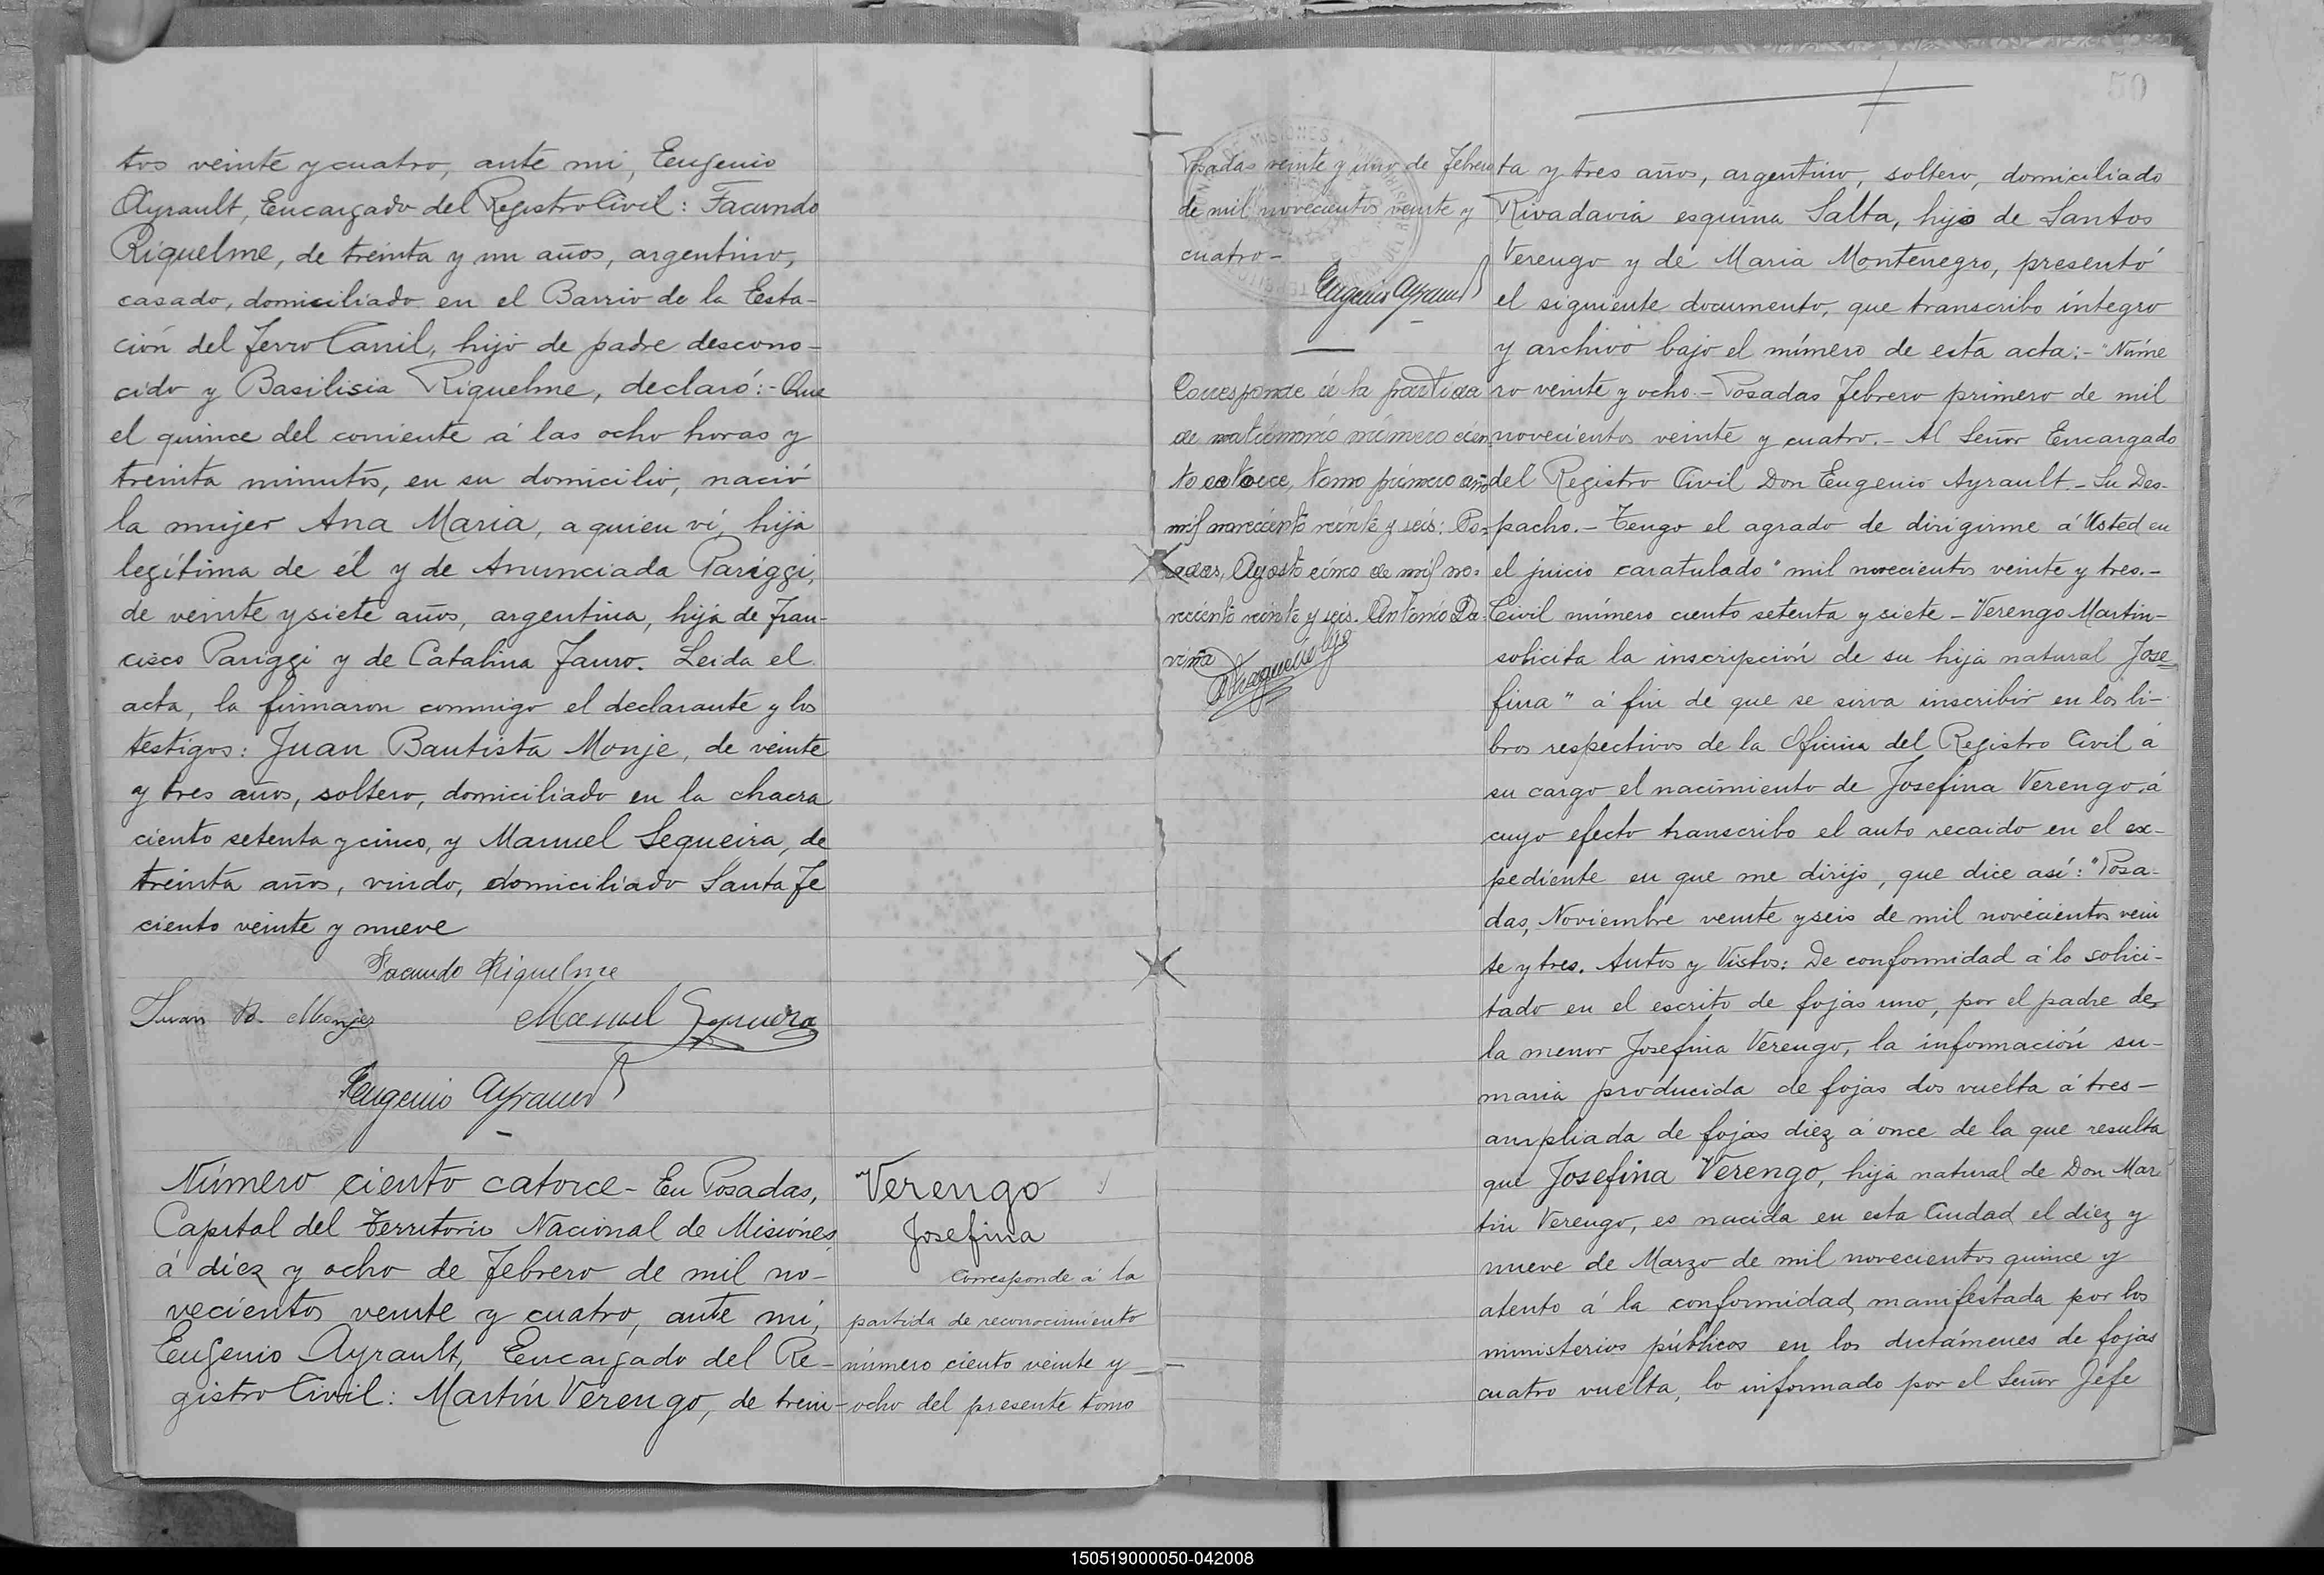 tos veinte y cuatro, ante mi, Eugenio
Ayrault, Encargado del Registro Civil: Facundo
Riquelme, de treinta y un años, argentino,
casado, domiciliado en el Barrio de la Esta-
ción del Ferro Carril, hijo de padre descono-
cido y Basilisia Riquelme, declaró:- Que
el quince del corriente á las ocho horas y
treinta minutos, en su domicilio, nació
la mujer Ana Maria, a quien ví, hija
legítima de él y de Anunciada Pariggi,
de veinte y siete años, argentina, hija de Fran-
cisco Pariggi y de Catalina Fauro. Leida el
acta, la firmaron conmigo el declarante y los
testigos: Juan Bautista Monje, de veinte
y tres años, soltero, domiciliado en la chacra
ciento setenta y cinco, y Manuel Sequeira, de
treinta años, viudo, domiciliado Santa Fe
ciento veinte y nueve
Facundo Riquelme
Juan B. Monjes
Manuel Sequeira
Eugenio Ayrault
Número ciento catorce - En Posadas,
Capital del Territorio Nacional de Misiones,
á diez y ocho de Febrero de mil no-
vecientos veinte y cuatro, ante mí,
Eugenio Ayrault, Encargado del Re-
gistro Civil: Martín Verengo, de trein-
Verengo
Josefina
Corresponde á la
partida de reconocimiento
número ciento veinte y
ocho del presente tomo
50
Posadas veinte y uno de Febrero
de mil novecientos veinte y
cuatro-
Eugenio Ayrault
Corresponde á la partida
de matrimonio número cien
to catorce, tomo primero año
mil novecientos veinte y seis: Po=
sadas, Agosto cinco de mil no=
veciento veinte y seis. Antonio Da
viña
ta y tres años, argentino, soltero, domiciliado
Rivadavia esquina Salta, hijo de Santos
Verengo y de Maria Montenegro, presentó
el siguiente documento, que transcribo íntegro
y archivo bajo el número de esta acta:- "Núme
ro veinte y ocho - Posadas Febrero primero de mil
novecientos veinte y cuatro.- Al Señor Encargado
del Registro Civil Don Eugenio Ayrault - Su Des-
pacho.- Tengo el agrado de dirigirme á Usted en
el juicio caratulado "mil novecientos veinte y tres.-
Civil número ciento setenta y siete - Verengo Martin-
solicita la inscripción de su hija natural Jose=
fina" á fin de que se sirva inscribir en los li-
bros respectivos de la Oficina del Registro Civil á
su cargo el nacimiento de Josefina Verengo, á
cuyo efecto transcribo el auto recaido en el ex-
pediente en que me dirijo, que dice así: "Posa-
das, Noviembre veinte y seis de mil novecientos vein
te y tres. Autos y Vistos: De conformidad á lo solici-
tado en el escrito de fojas uno, por el padre de
la menor Josefina Verengo, la información su-
maria producida de fojas dos vuelta á tres-
ampliada de fojas diez á once de la que resulta
que Josefina Verengo, hija natural de Don Mar
tin Verengo, es nacida en esta Ciudad el diez y
nueve de Marzo de mil novecientos quince y
atento á la conformidad manifestada por los
ministerios públicos en los dictámenes de fojas
cuatro vuelta, lo informado por el Señor Jefe
150519000050-042008